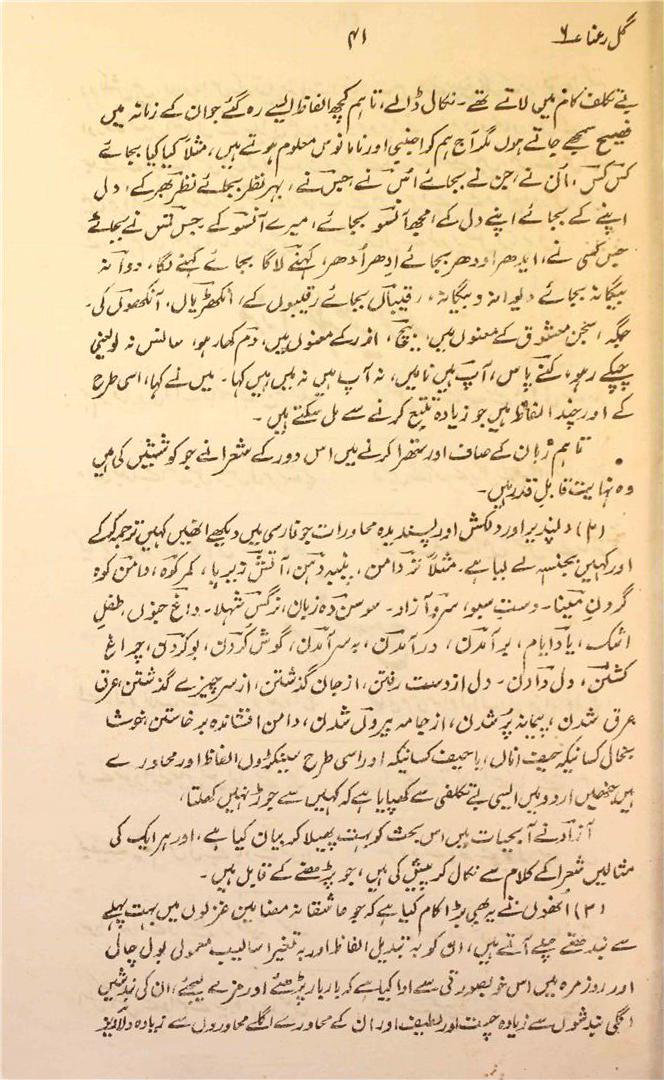 گل رعنا عـ۶ ۴۱
بے تکلف کام میں لاتے تھے۔ نکال ڈالے، تاہم کچھ الفاظ ایسے رہ گئے جو ان کے زمانہ میں
فصیح سمجھے جاتے ہوں مگر آج ہم کو اجنبی اور نامانوس معلوم ہوتے ہیں، مثلاً کیا کیا بجائے
کس کس، اُن نے، جن نے بجائے اُس نے، جس نے، بہر نظر بجائے نظر بھر کے، دل
اپنے کے بجائے اپنے دل کے، مجھ آنسو بجائے، میرے آنسو کے جس کس نے بجائے
جس کسی نے، ایدھر اودھر بجائے اِدھر اُدھر، کہنے لاگا بجائے کہنے لگا، دوانہ
بیگانہ بجائے دیوانہ و بیگانہ، رقیباں بجائے رقیبوں کے، انکھڑیاں، آنکھوں کی۔
جگہ، سجن معشوق کے معنوں میں، بیچ، اندر کے معنوں میں، دم کھا رہو، سانس نہ لو یعنی
چپکے رہو، کنے پاس، آپ ہیں نا میں، نہ آپ ہیں نہ میں ہیں کہا۔ میں نے کہا، اسی طرح
کے اور چند الفاظ ہیں جو زیادہ تتبع کرنے سے مل سکتے ہیں۔
تاہم زبان کے صاف اور ستھرا کرنے میں اس دور کے شعرا نے جو کوششیں کی ہیں
وہ نہایت قابل قدر ہیں۔
(۲) دلپذیر اور دلکش اور پسندیدہ محاورات جو فارسی میں دیکھے انھیں کہیں ترجمہ کر کے
اور کہیں بجنسہ لے لیا ہے۔ مثلاً تر دامن، پنبہ دہن، آتش زیر پا، کمر کوہ، دامن کوہ
گردن مینا۔ دست سبو، سرو آزاد۔ سوسن دہ زبان، نرگس شہلا۔ داغ جنوں، طفل
اشک، یاد ایام، بر آمدن، در آمدن، بہ سر آمدن، گوش کردن، بو کردن، چراغ
کشتن، دل دادن۔ دل از دست رفتن، از جان گذشتن، از سر چیزے گذشتن، عرق
عرق شدن، پیمانہ پر شدن، از جامہ بیروں شدن، دامن افشاندہ برخاستن، خوشا
بحال کسانیکہ، حیف اناں، یا حیف کسانیکہ اور اسی طرح سینکڑوں الفاظ اور محاورے
ہیں جنھیں اردو میں ایسی بے تکلفی سے کھپایا ہے کہ کہیں سے جوڑ نہیں کھلتا،
آزاد نے آبحیات میں اس بحث کو بہت پھیلا کر بیان کیا ہے، اور ہر ایک کی
مثالیں شعرا کے کلام سے نکال کر پیش کی ہیں، جو پڑھنے کے قابل ہیں۔
(۳) انھوں نے یہ بھی بڑا کام کیا ہے کہ جو عاشقانہ مضامین غزلوں میں بہت پہلے
سے بندھتے چلے آتے ہیں، ان کو بہ تبدیل الفاظ اور بہ تغیر اسالیب معمولی بول چال
اور روزمرہ میں اس خوبصورتی سے ادا کیا ہے کہ بار بار پڑھئے اور مزے لیجئے، ان کی بندشیں
اگلی بندشوں سے زیادہ چست اور لطیف اور ان کے محاورے اگلے محاوروں سے زیادہ دلآویز